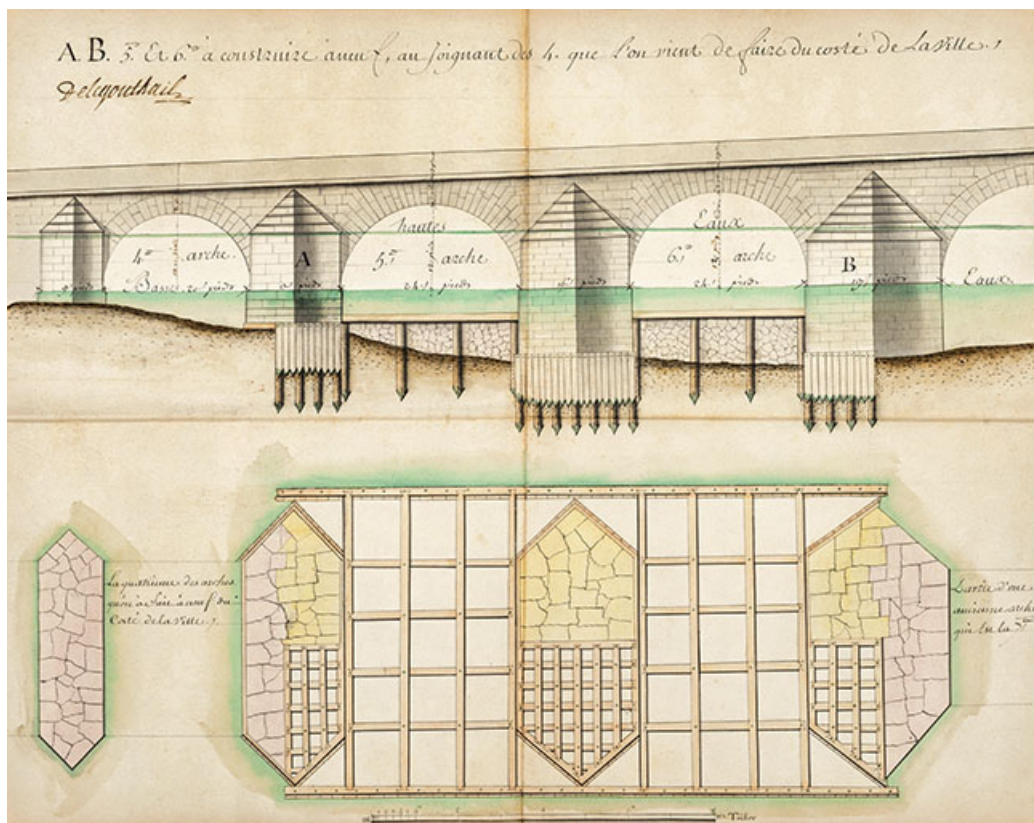 A B. 5.e Et 6.e à construire à neuf, au joignant des 4. que l'on vient de faire du costé de La Ville.
hautes Eaux
4.e arche.
A
5.e arche
6.e arche
B
Basses
pieds
pieds
24 pieds
pieds
24 pieds
19 pieds
Eaux
La quatrieme des arches
à faire à neuf du
Costé de la Ville.
Partie d'une
ancienne arche
qui est la 7.e